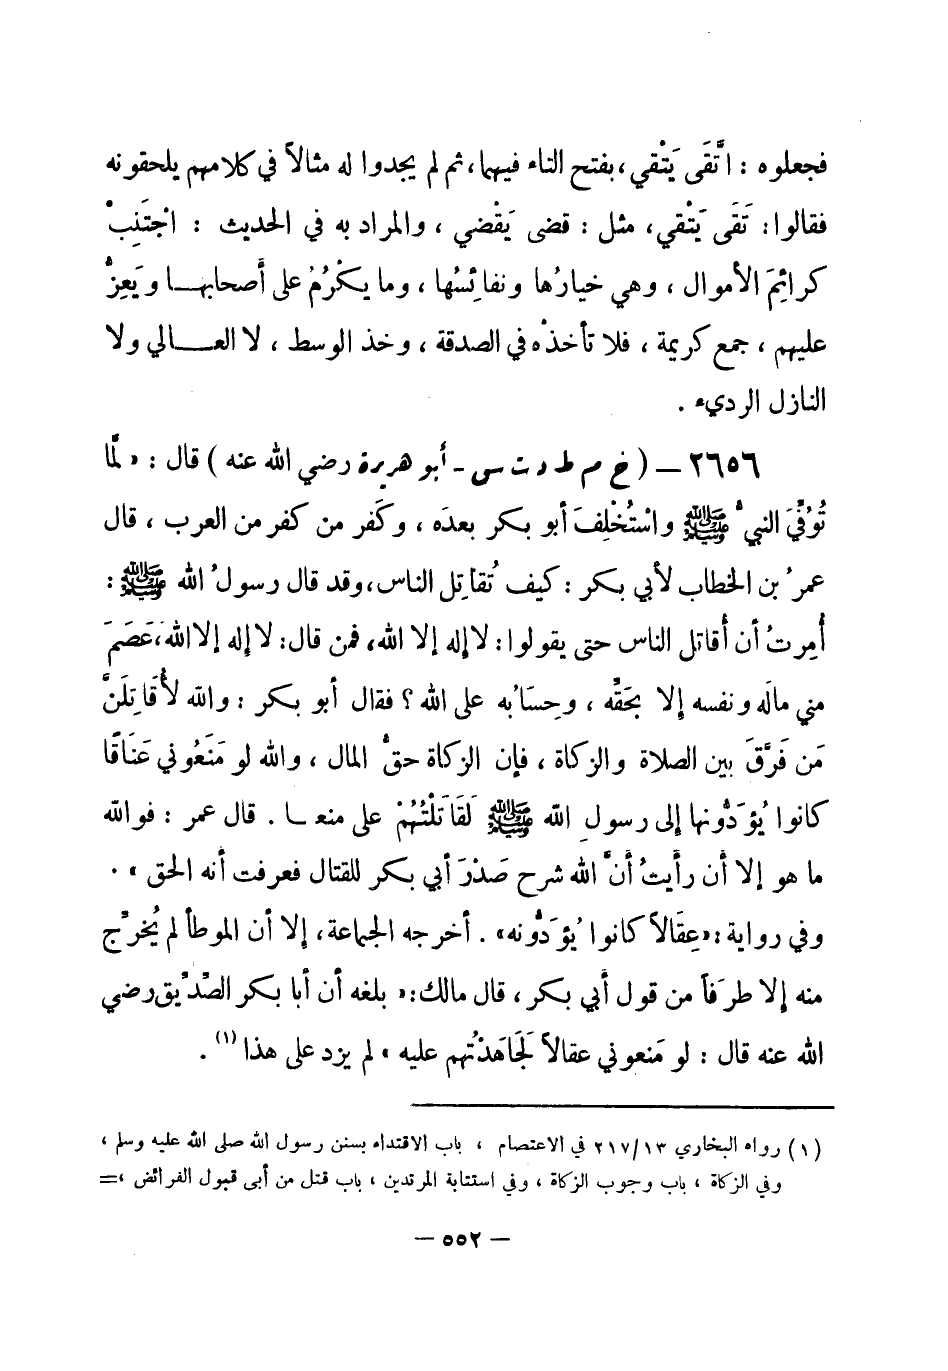 فجعلوه : اتَّقَى يَتْقي ، بفتح التاء فيهما، ثم لم يجدوا له مثالاً في كلامهم يلحقونه
فقالوا : تَقَى يَتْقي، مثل : قضى يَقْضي ، والمراد به في الحديث : اجْتَنِبْ
كرائِمَ الأموال ، وهي خيارُها ونفائسُها ، وما يكْرُمُ على أصحابهـا ويَعِزُّ
عليهم ، جمع كريمة ، فلا تأخذْه في الصدقة ، وخذ الوسط ، لا العـالي ولا
النازل الرديء .
٢٦٥٦ – ( خ م ط د ت س - أبو هريرة رضي الله عنه ) قال : « لمَّا
تُوُفِّيَ النبيُّ ﷺ واسْتُخْلِفَ أبو بكر بعدَه ، وكَفر من كفر من العرب ، قال
عمرُ بن الخطاب لأبي بكر : كيف تُقاتِل الناس، وقد قال رسولُ الله ﷺ :
أُمِرتُ أن أُقاتل الناس حتى يقولوا : لا إله إلا الله، فمن قال: لا إله إلا الله، عَصَمَ
مني مالَه ونفسه إلا بحَقِّه ، وحِسَابُه على الله ؟ فقال أبو بكر : والله لأُقَاتِلَنَّ
مَن فَرَّقَ بين الصلاة والزكاة ، فإن الزكاة حقُّ المال ، والله لو مَنَعُوني عَنَاقًا
كانوا يُؤَدُّونها إلى رسولِ الله ﷺ لَقَاتَلْتُهُمْ على منعـا . قال عمر : فوالله
ما هو إلا أن رأيتُ أنَّ الله شرح صَدْرَ أبي بكر للقتال فعرفت أنه الحق » .
وفي رواية : «عِقَالاً كانوا يُؤَدُّونه» . أخرجه الجماعة، إلا أن الموطأ لم يُخرِّج
منه إلا طرَفاً من قول أبي بكر ، قال مالك : « بلغه أن أبا بكر الصِّدِّيق رضي
الله عنه قال : لو مَنعوني عقالاً لَجَاهَدْتُهم عليه » لم يزد على هذا (١) .
(١) رواه البخاري ٢١٧/١٣ في الاعتصام ، باب الاقتداء بسنن رسول الله صلى الله عليه وسلم ،
وفي الزكاة ، باب وجوب الزكاة ، وفي استتابة المرتدين ، باب قتل من أبى قبول الفرائض ،=
– ٥٥٢ –